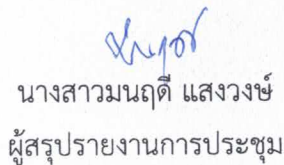 นางสาวมนฤดี แสงวงษ์
ผู้สรุปรายงานการประชุม